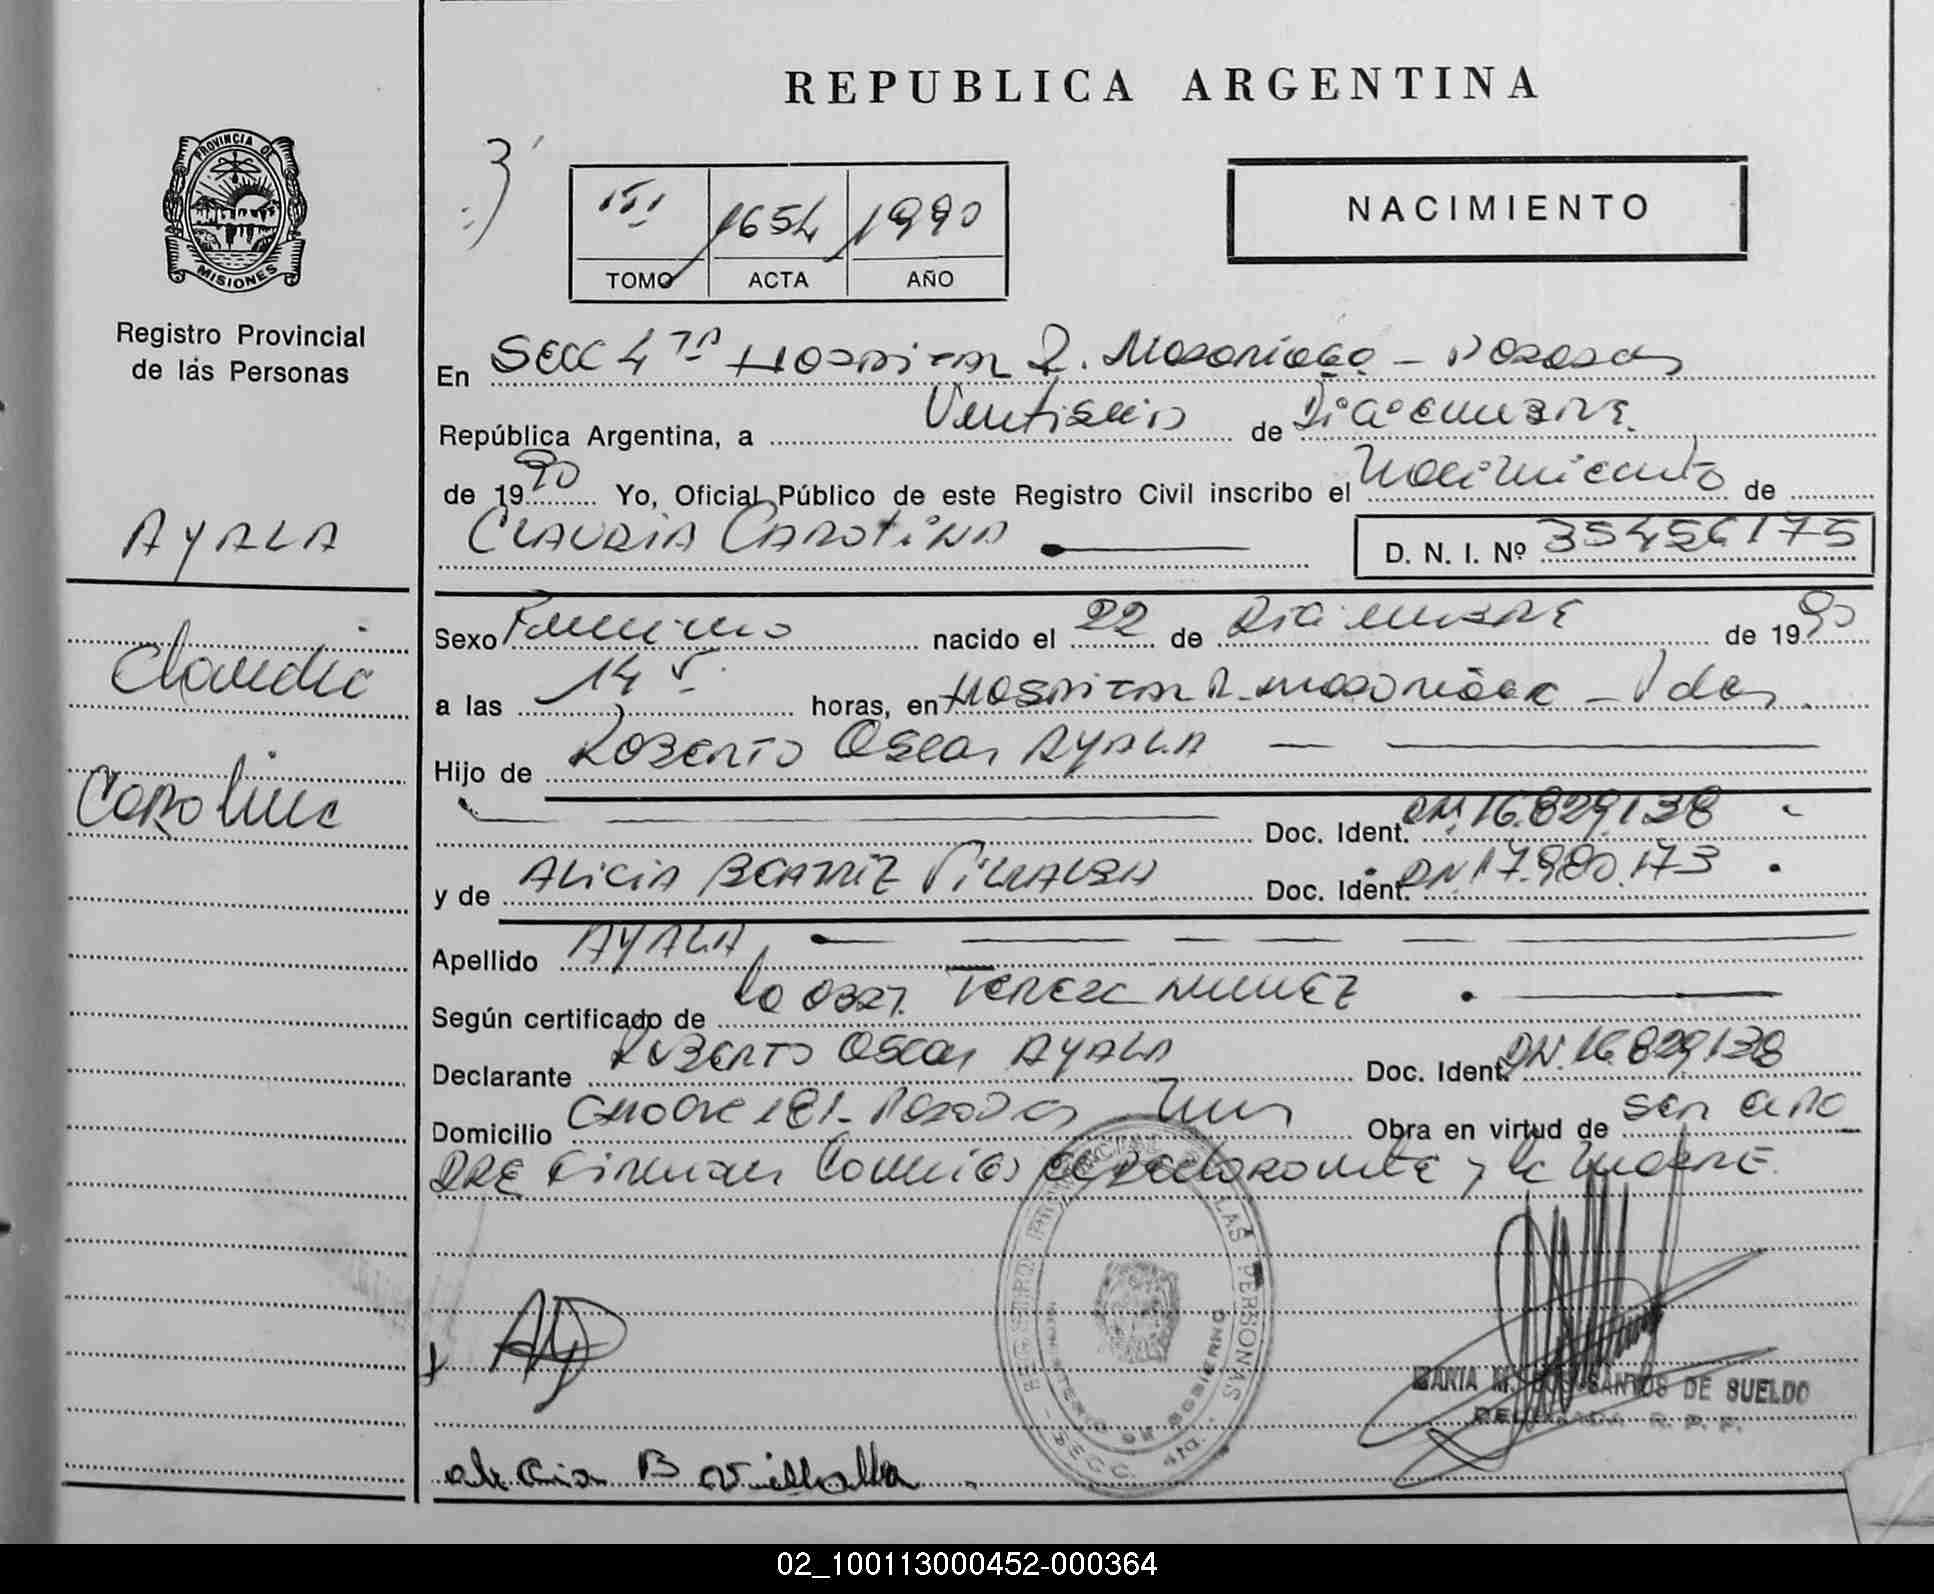 REPUBLICA ARGENTINA
PROVINCIA DE
MISIONES
Registro Provincial
de las Personas
AYALA
Claudia
Carolina
III 1654 1990
TOMO ACTA AÑO
NACIMIENTO
En Secc 4ta Hospital R. Madariaga - Posadas
República Argentina, a Veintiseis de Diciembre
de 1990 Yo, Oficial Público de este Registro Civil inscribo el Nacimiento de
CLAUDIA CAROLINA D. N. I. Nº 35456175
Sexo Femenino nacido el 22 de Diciembre de 1990
a las 14 horas, en Hospital R. Madariaga - Pdas.
Hijo de Roberto Oscar AYALA
Doc. Ident. DNI. 16.829.138
y de ALICIA BEATRIZ VILLALBA Doc. Ident. DNI. 17.980.173
Apellido AYALA
Según certificado de la Obst. Tereza Nuñez
Declarante Roberto Oscar AYALA Doc. Ident. DNI. 16.829.138
Domicilio 181 - Posadas Obra en virtud de ser el Pa
dre Firman Conmigo el declarante y la madre.
REGISTRO PROVINCIAL DE LAS PERSONAS
MINISTERIO DE GOBIERNO
SECC. 4ta.
MARIA M. DOS SANTOS DE SUELDO
DELEGADA R. P. P.
alicia B villalba
02_100113000452-000364